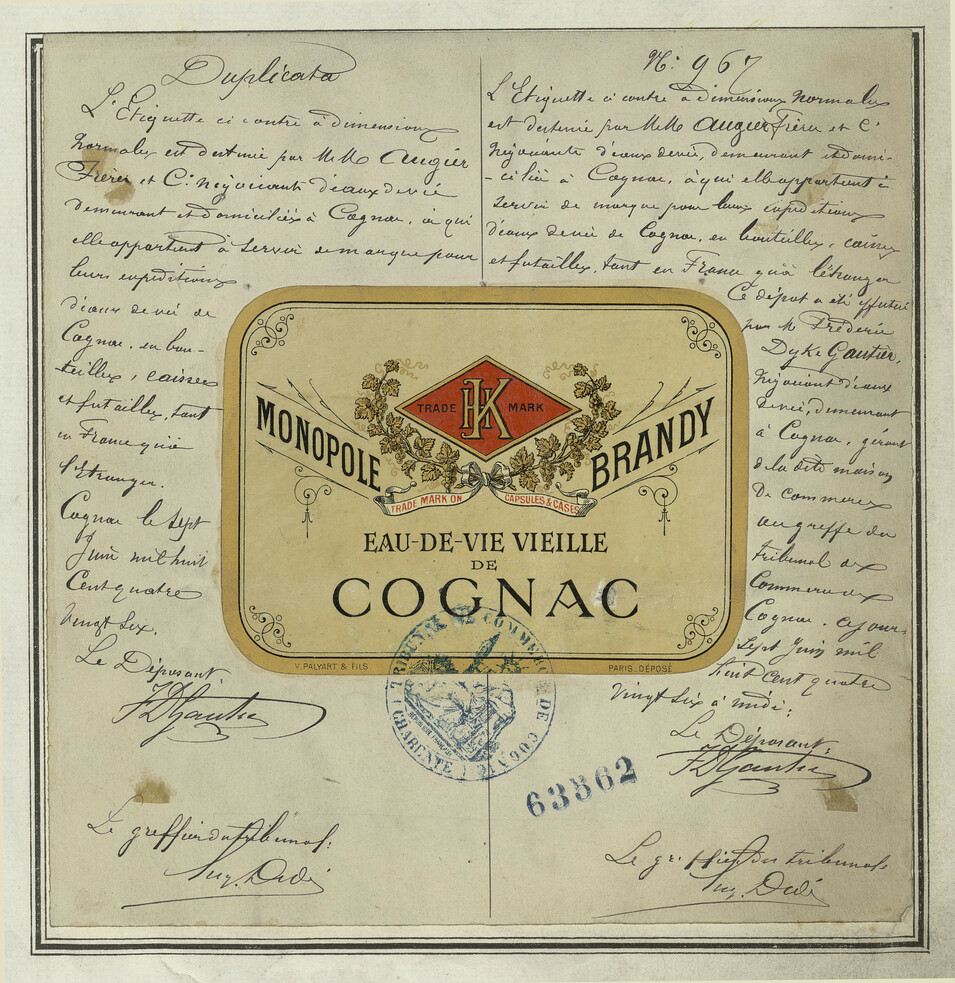 Duplicata
L'Etiquette ci contre à dimensions
Normales est destinée par M.M. Augier
Frères et Cie Négociants d'eaux de vie
demeurant et domiciliés à Cognac, à qui
elle appartient à servir de marque pour
leurs expéditions
d'eaux de vie de
Cognac, en bou-
teilles, caisses
et futailles, tant
en France qu'à
l'Etranger.
Cognac le sept
Juin mil huit
Cent quatre
Vingt Six.
Le Déposant
FDGautier
Le greffier du tribunal:
Aug. Dedé
N: 967
L'Etiquette ci contre à dimensions Normales
est destinée par M.M. Augier Frères et Cie
Négociants d'eaux de vie, demeurant et domi-
-ciliés à Cognac, à qui elle appartient à
servir de marque pour leurs expéditions
d'eaux de vie de Cognac, en bouteilles, caisses
et futailles, tant en France qu'à l'étranger
Ce dépôt a été effectué
par M. Fréderic
Dyke Gautier,
Négociant d'eaux
de vie, demeurant
à Cognac, gérant
de la dite maison
de Commerce
au greffe du
tribunal de
Commerce de
Cognac. ce jour-
Sept Juin mil
huit cent quatre
Vingt Six à midi:
Le Déposant:
FDGautier
Le greffier du tribunal
Aug. Dedé
TRADE HK MARK
MONOPOLE BRANDY
TRADE MARK ON CAPSULES & CASES
EAU-DE-VIE VIEILLE
DE
COGNAC
V. PALYART & FILS PARIS. DÉPOSÉ
TRIBUNAL DE COMMERCE DE COGNAC
(CHARENTE)
63862